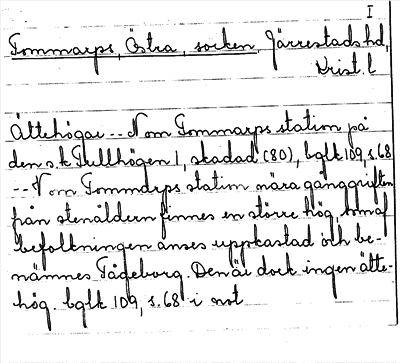 I
Tommarps, Östra, socken, Järrestads hd,
Krist. l
Ättehögar -- N om Tommarps station på
den s.k Kullhögen 1, skadad (80), bglk 109, s.68
-- N om Tommarps station nära gånggriften
från stenåldern finnes en större hög, som af
befolkningen anses uppkastad och be-
nämnes Tågeborg. Den är dock ingen ätte-
hög. bglk 109, s.68 i not